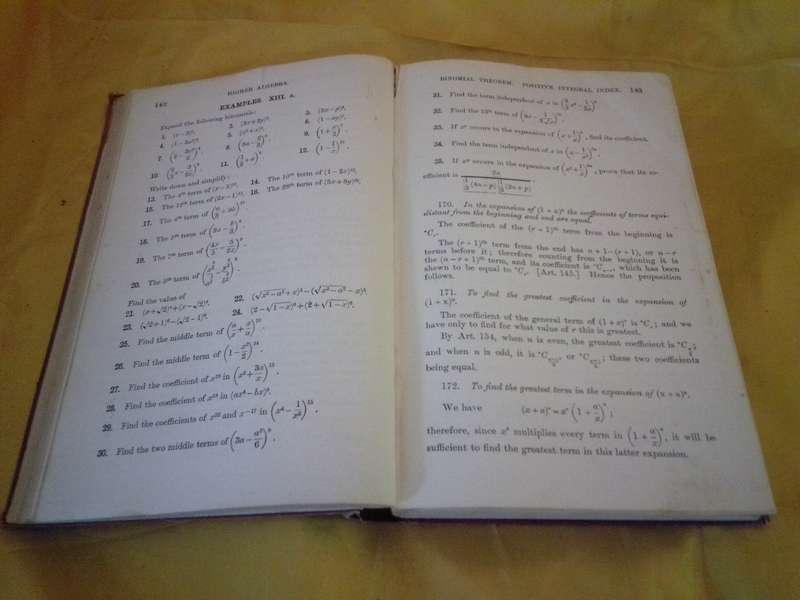 142
HIGHER ALGEBRA.
EXAMPLES. XIII. a.
Expand the following binomials:
1. (x-3)⁵.
2. (3x+2y)⁴.
3. (2x-y)⁵.
4.
5.
6.
7.
8.
9.
10.
11.
12.
Write down and simplify:
13. The 4th term of
14. The 10th term of (1-2x)¹².
15. The 12th term of (2x-1)¹³.
16. The 28th term of (5x+8y)³⁰.
17. The 4th term of
18. The 5th term of
19. The 7th term of
20. The 5th term of
Find the value of
21. (x+√2)⁴+(x-√2)⁴.
22. (√x²-a²+x)⁵-(√x²-a²-x)⁵.
23. (√2+1)⁶-(√2-1)⁶.
24. (2-√1-x)⁶+(2+√1-x)⁶.
25. Find the middle term of (a/x+x/a)¹⁰.
26. Find the middle term of (1-x²/2)¹⁴.
27. Find the coefficient of x¹⁸ in (x²+3a/x)¹⁵.
28. Find the coefficient of x¹⁸ in (ax⁴-bx)⁹.
29. Find the coefficients of x³² and x⁻¹⁷ in (x⁴-1/x³)¹⁵.
30. Find the two middle terms of (3a-a³/6)⁹.
BINOMIAL THEOREM. POSITIVE INTEGRAL INDEX. 143
31. Find the term independent of x in (3/2 x²-1/3x)⁹.
32. Find the 13th term of (9x-1/3√x)¹⁸.
33. If xʳ occurs in the expansion of (x+1/x)ⁿ, find its coefficient.
34. Find the term independent of x in (x-1/x²)³ⁿ.
35. If xᵖ occurs in the expansion of (x²+1/x)²ⁿ, prove that its co-
efficient is 2n / 1/3(4n-p) 1/3(2n+p).
170. In the expansion of (1+x)ⁿ the coefficients of terms equi-
distant from the beginning and end are equal.
The coefficient of the (r+1)th term from the beginning is
ⁿCᵣ.
The (r+1)th term from the end has n+1-(r+1), or n-r
terms before it; therefore counting from the beginning it is
the (n-r+1)th term, and its coefficient is ⁿCₙ₋ᵣ, which has been
shewn to be equal to ⁿCᵣ. [Art. 145.] Hence the proposition
follows.
171. To find the greatest coefficient in the expansion of
(1+x)ⁿ.
The coefficient of the general term of (1+x)ⁿ is ⁿCᵣ; and we
have only to find for what value of r this is greatest.
By Art. 154, when n is even, the greatest coefficient is ⁿC n/2;
and when n is odd, it is ⁿC n-1/2, or ⁿC n+1/2; these two coefficients
being equal.
172. To find the greatest term in the expansion of (x+a)ⁿ.
We have (x+a)ⁿ=xⁿ(1+a/x)ⁿ;
therefore, since xⁿ multiplies every term in (1+a/x)ⁿ, it will be
sufficient to find the greatest term in this latter expansion.